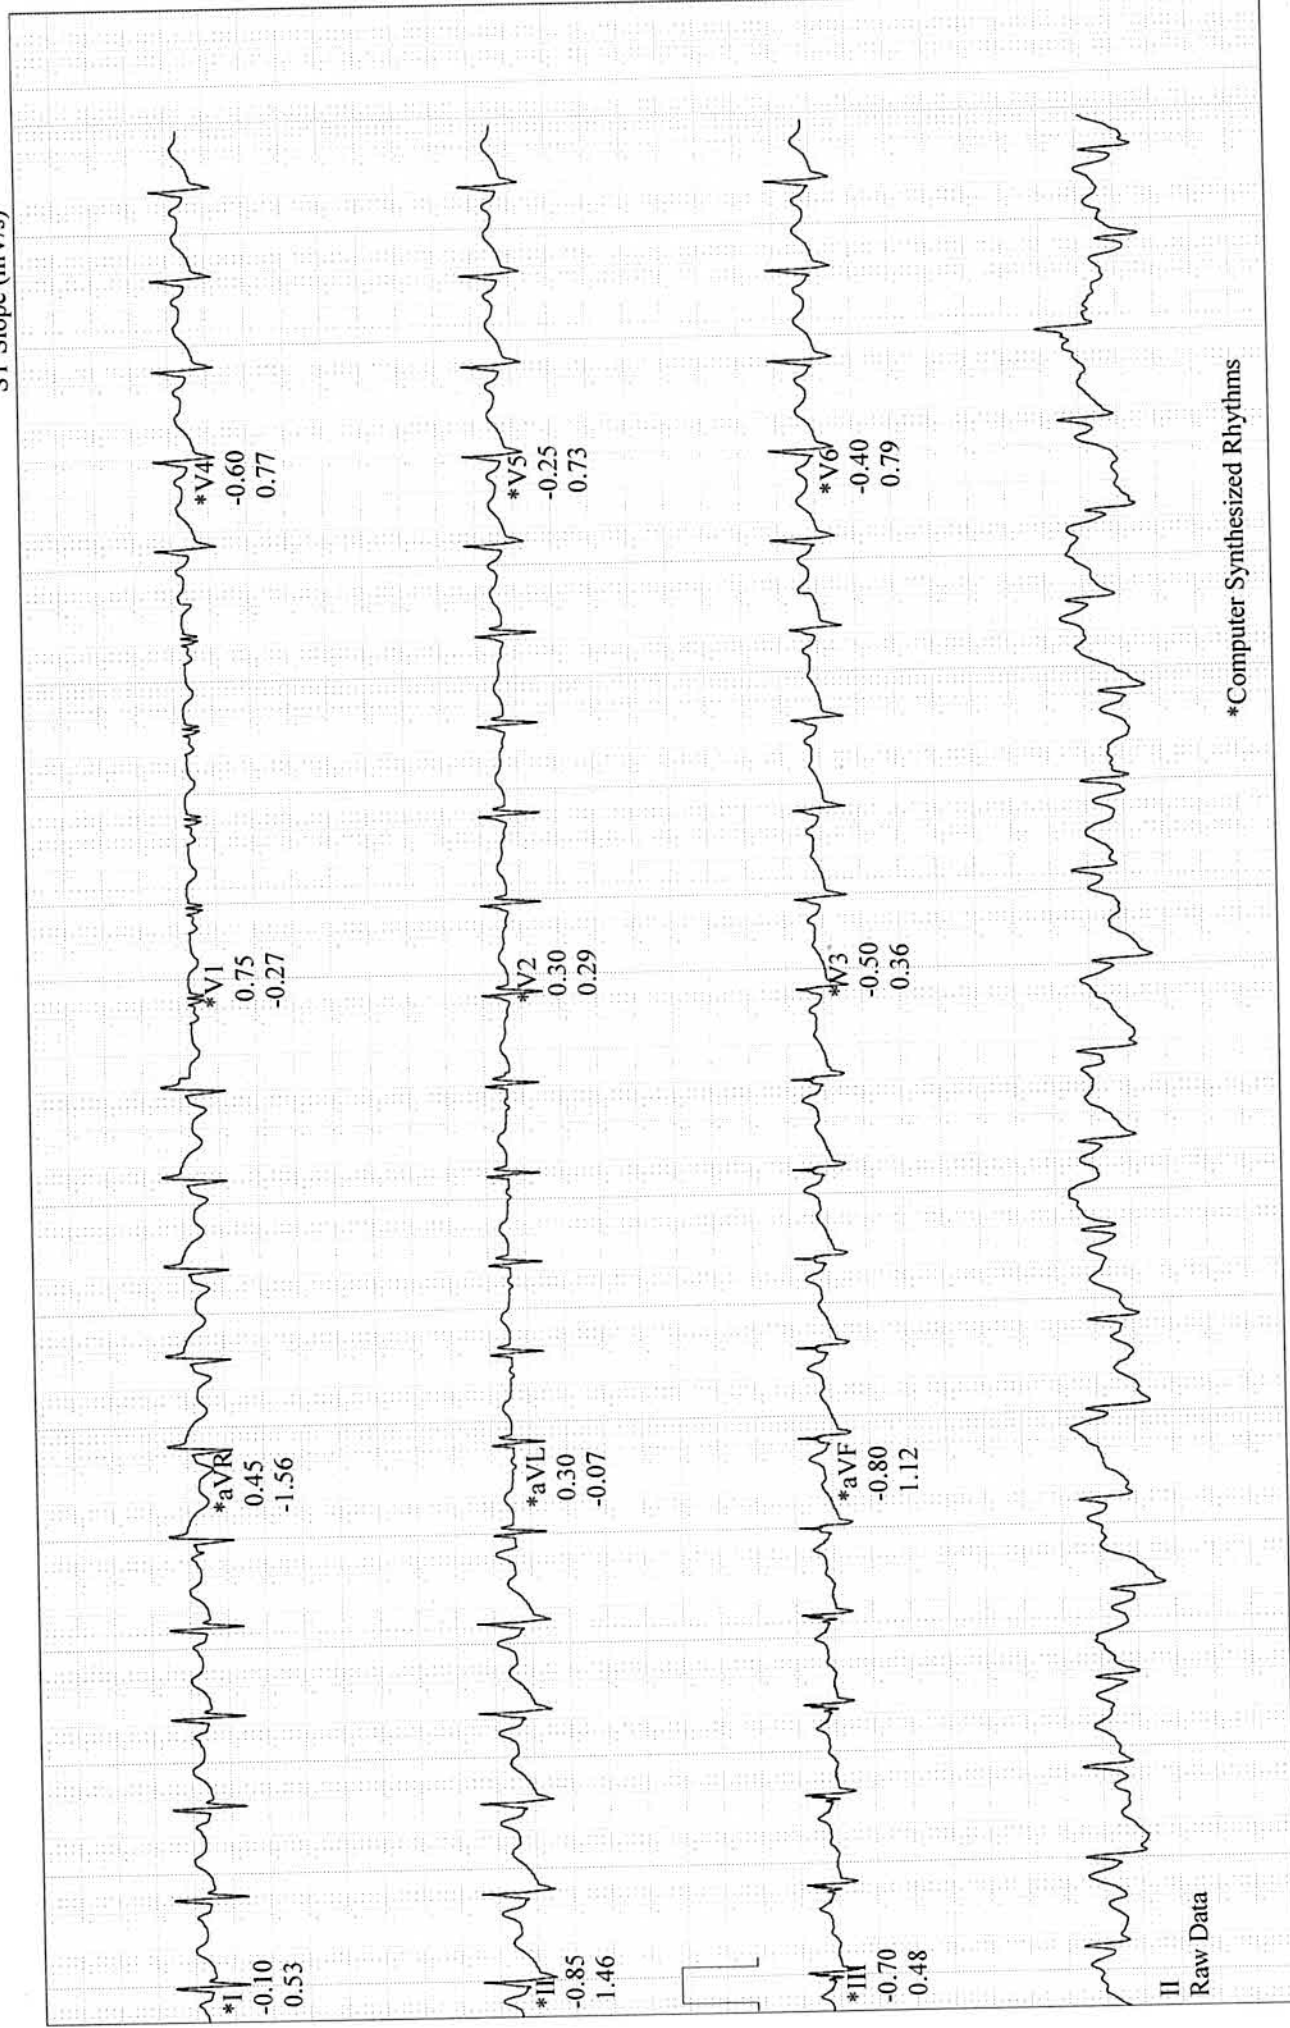 ST Slope (mV/s)
*I
-0.10
0.53
*aVR
0.45
-1.56
*V1
0.75
-0.27
*V4
-0.60
0.77
*II
-0.85
1.46
*aVL
0.30
-0.07
*V2
0.30
0.29
*V5
-0.25
0.73
*III
-0.70
0.48
*aVF
-0.80
1.12
*V3
-0.50
0.36
*V6
-0.40
0.79
II
Raw Data
*Computer Synthesized Rhythms